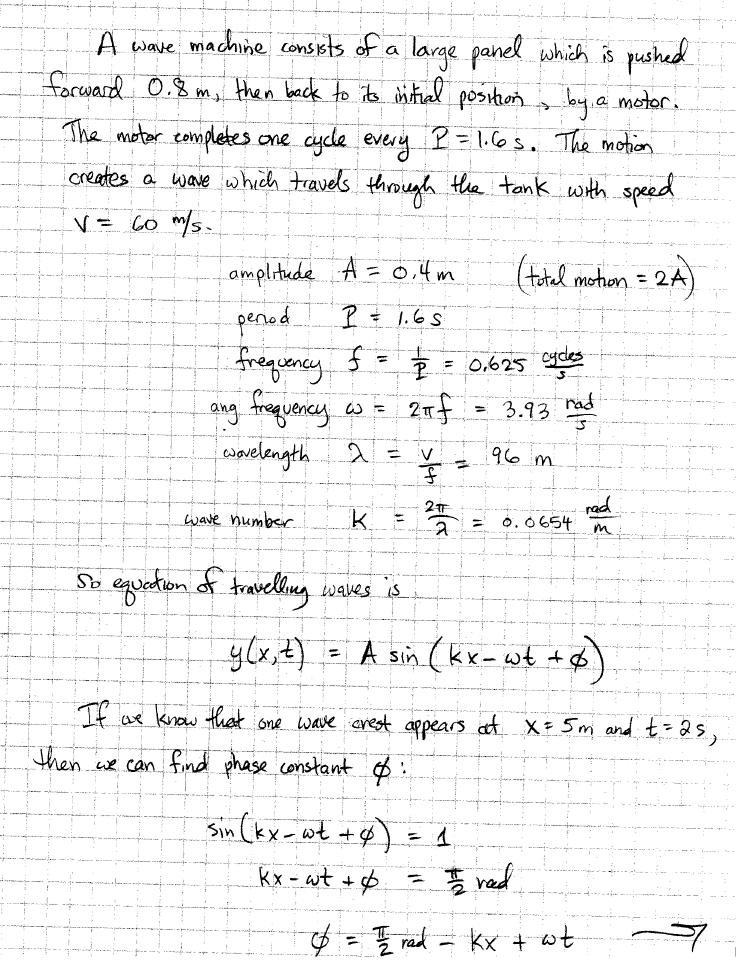 A wave machine consists of a large panel which is pushed
forward 0.8 m, then back to its initial position, by a motor.
The motor completes one cycle every P = 1.6 s. The motion
creates a wave which travels through the tank with speed
v = 60 m/s.
amplitude A = 0.4 m (total motion = 2A)
period P = 1.6 s
frequency f = 1/P = 0.625 cycles/s
ang frequency ω = 2πf = 3.93 rad/s
wavelength λ = v/f = 96 m
wave number k = 2π/λ = 0.0654 rad/m
So equation of travelling waves is
y(x,t) = A sin (kx - ωt + φ)
If we know that one wave crest appears at x = 5 m and t = 2 s,
then we can find phase constant φ:
sin (kx - ωt + φ) = 1
kx - ωt + φ = π/2 rad
φ = π/2 rad - kx + ωt →